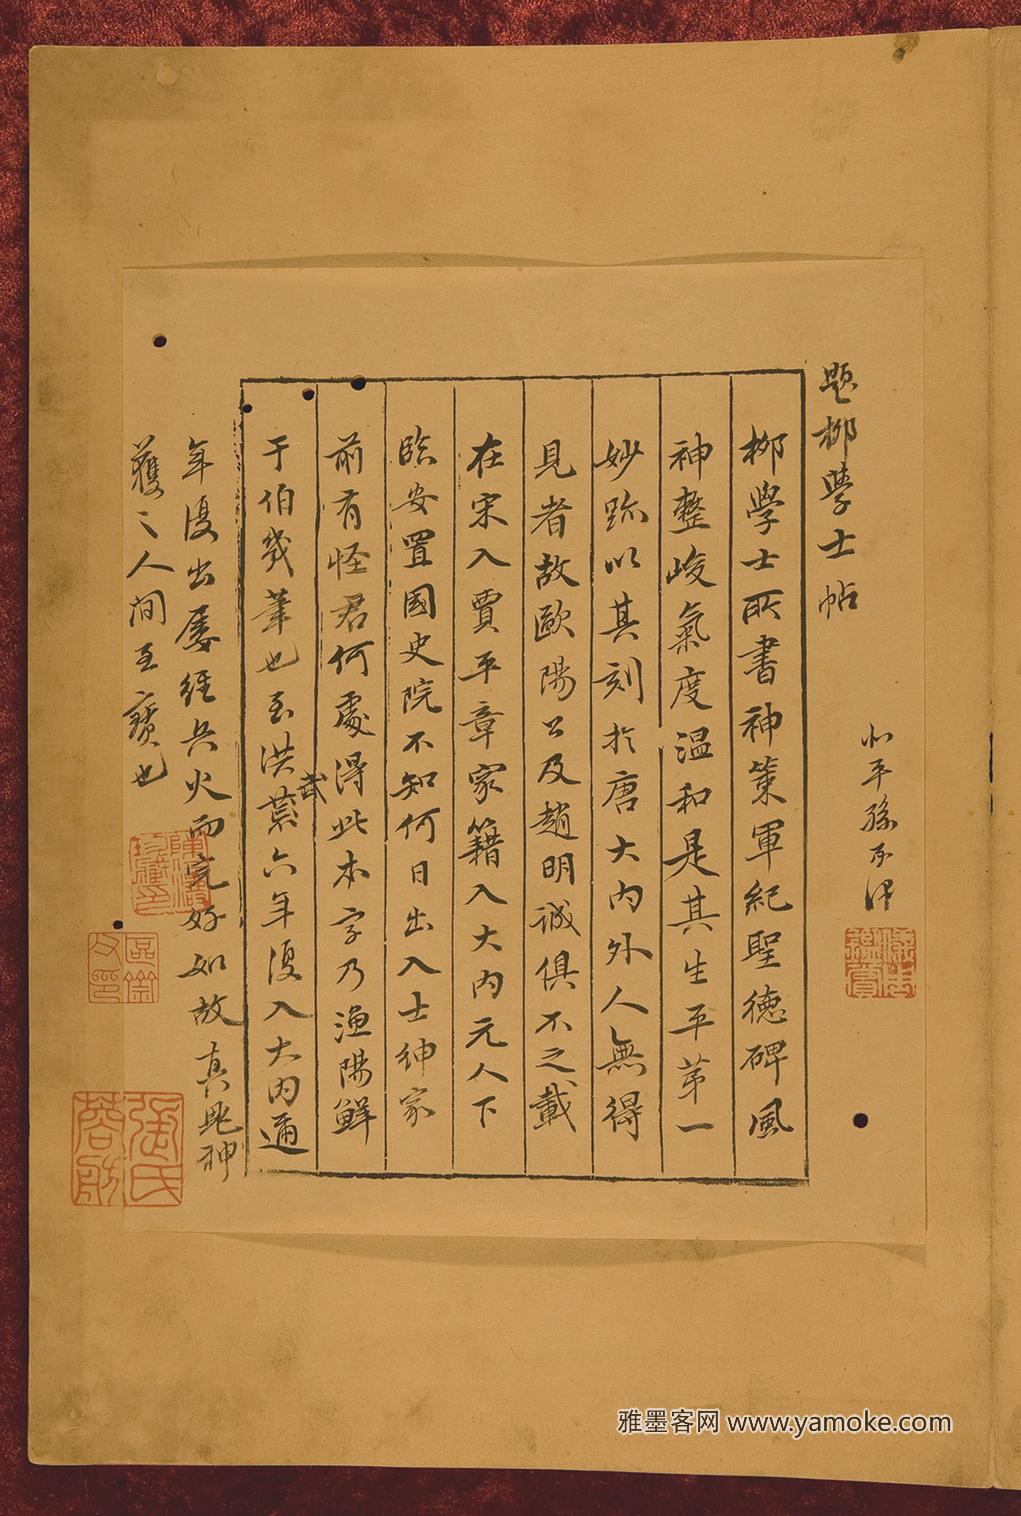 題柳學士帖
北平孫承澤
柳學士所書神策軍紀聖德碑風
神整峻氣度温和是其生平第一
妙跡以其刻於唐大内外人無得
見者故歐陽公及趙明誠俱不之載
在宋入賈平章家籍入大内元人下
臨安置國史院不知何日出入士紳家
前有怪君何處得此本字乃漁陽鮮
于伯幾筆也至洪武六年復入大内適
年復出屡經兵火而完好如故真鬼神
獲之人間至寶也
張氏蔥玉
雅墨客网 www.yamoke.com